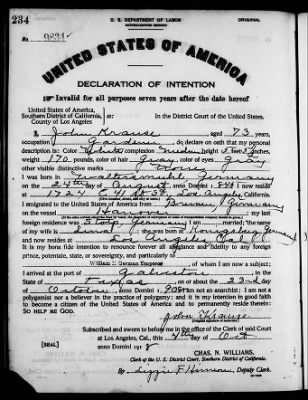 234
U. S. DEPARTMENT OF LABOR
ORIGINAL
No. 9831
UNITED STATES OF AMERICA
DECLARATION OF INTENTION
Invalid for all purposes seven years after the date hereof
United States of America,
Southern District of California, ss:
County of Los Angeles
In the District Court of the United States.
I, John Krause aged 73 years,
occupation Gardener, do declare on oath that my personal
description is: Color White, complexion Medium, height 5 feet 3 inches,
weight 170 pounds, color of hair Gray, color of eyes Gray
other visible distinctive marks None
I was born in Germany
on the 24th day of August, anno Domini 1; I now reside
at 1224 E 41 St Los Angeles, California.
I emigrated to the United States of America from Bremen Germany
on the vessel Hanover; my last
foreign residence was Germany; I am married; the name of my
wife is; she was born at Konigsberg Germany
and now resides at Los Angeles Cal
It is my bona fide intention to renounce forever all allegiance and fidelity to any foreign
prince, potentate, state, or sovereignty, and particularly to
William II German Emperor, of whom I am now a subject;
I arrived at the port of Galveston, in the
State of Texas, on or about the 23rd day
of October, anno Domini 1908; I am not an anarchist; I am not a
polygamist nor a believer in the practice of polygamy; and it is my intention in good faith
to become a citizen of the United States of America and to permanently reside therein:
SO HELP ME GOD.
John Krause
Subscribed and sworn to before me in the office of the Clerk of said Court
at Los Angeles, Cal., this 4th day of Oct
[SEAL]
anno Domini 191
CHAS. N. WILLIAMS,
Clerk of the U. S. District Court, Southern District of California.
By Deputy Clerk.